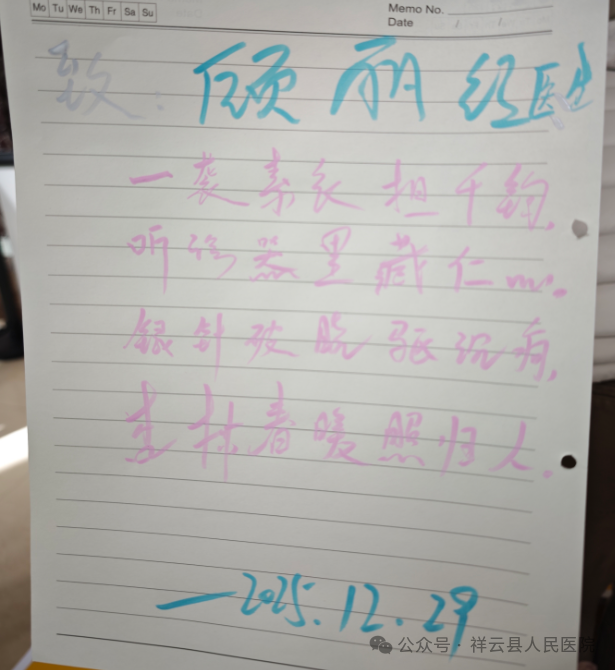 Mo Tu We Th Fr Sa Su
Memo No.
Date
致: 顾丽红医生
一袭素衣担千钧,
听诊器里藏仁心.
银针破晓驱沉疴,
杏林春暖照归人.
—2025.12.29
公众号·祥云县人民医院